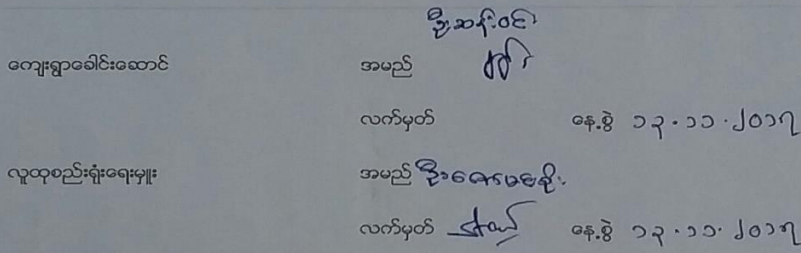 ဦးဆန်းဝင်း
ကျေးရွာခေါင်းဆောင် အမည်
လက်မှတ် နေ့စွဲ ၁၃.၁၁.၂၀၁၇
လူထုစည်းရုံးရေးမှူး အမည် ဦး
လက်မှတ် နေ့စွဲ ၁၃.၁၁.၂၀၁၇